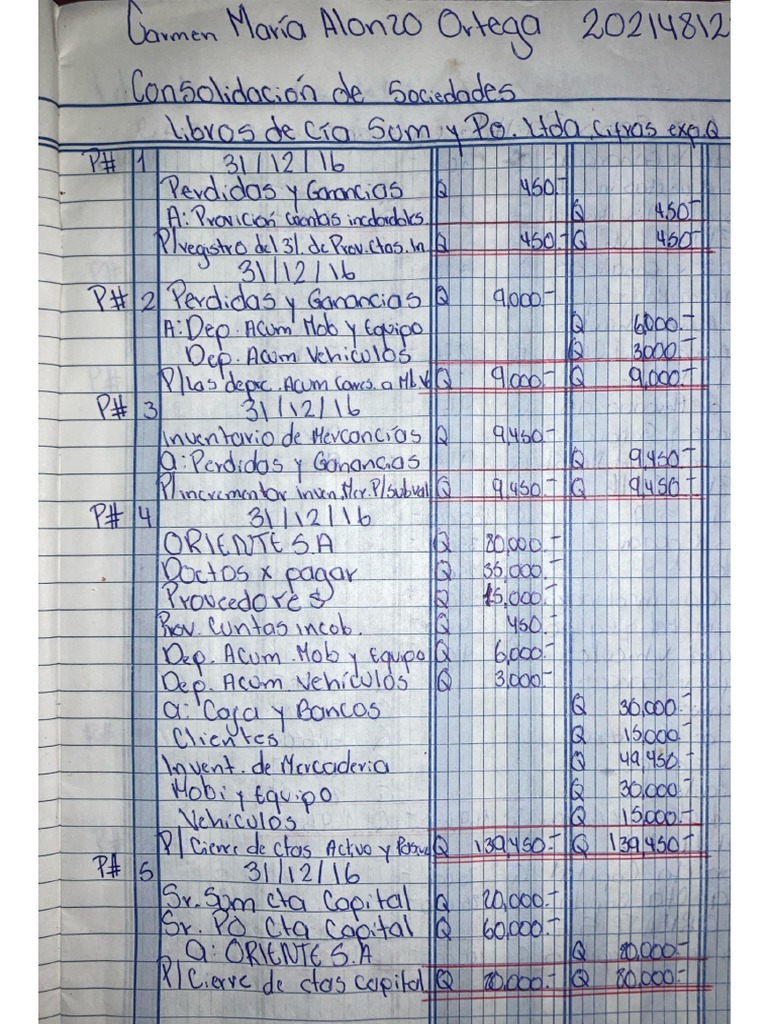 Carmen María Alonzo Ortega 20214812
Consolidación de Sociedades
Libros de Cía Sum y Po. Ltda. Cifras exp. Q
P# 1 31/12/16
Perdidas y Ganancias Q 450.-
A: Provición cuentas incobrables Q 450-
P/registro del 3%. de Prov. Ctas. In. Q 450- Q 450-
31/12/16
P# 2 Perdidas y Ganancias Q 9,000-
A: Dep. Acum Mob y Equipo Q 6,000.-
Dep. Acum Vehículos Q 3000.-
P/Las deprc. Acum Q 9,000.- Q 9,000.-
P# 3 31/12/16
Inventario de Mercancías Q 9,450.-
a: Perdidas y Ganancias Q 9,450-
P/incrementar Inven. Mer. P/Subval Q 9,450.- Q 9,450-
P# 4 31/12/16
ORIENTE S.A Q 80,000.-
Doctos x pagar Q 35,000.-
Proveedores Q 15,000.-
Prov. Cuntas incob. Q 450.-
Dep. Acum. Mob y Equipo Q 6,000.-
Dep. Acum Vehículos Q 3,000.-
a: Caja y Bancos Q 30,000.-
Clientes Q 15,000.-
Invent. de Mercaderia Q 49,450.-
Mobi y Equipo Q 30,000.-
Vehiculos Q 15,000.-
P/ Cierre de ctas Activo y Pasivo Q 139,450.- Q 139,450-
P# 5 31/12/16
Sr. Sum cta Capital Q 20,000.-
Sr. PO Cta Capital Q 60,000.-
a: ORIENTE S.A Q 80,000.-
P/ Cierre de ctas capital Q 80,000.- Q 80,000.-